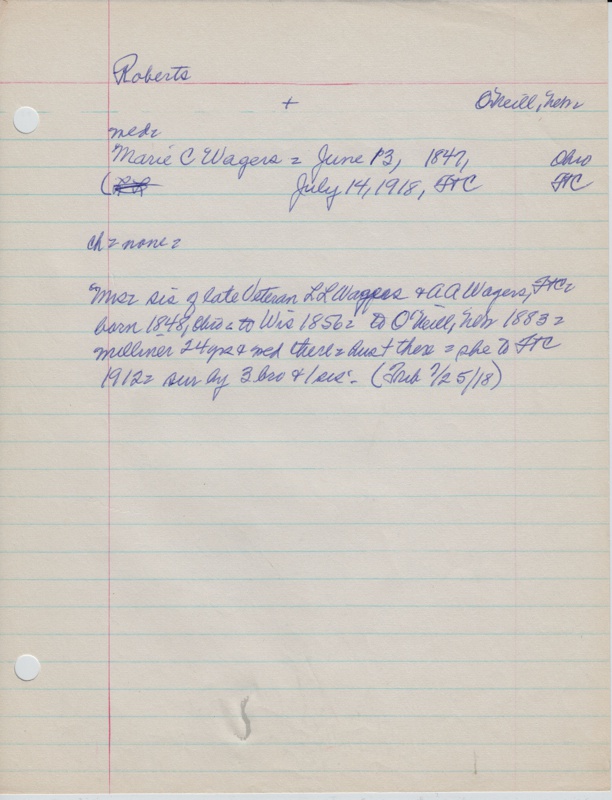 Roberts
+ O'Neill, Neb=
med=
Marie C Wagers = June 13, 1847, Ohio
( July 14, 1918, FTC FTC
ch = none =
Mrs= sis of late Veteran L L Wagers & A A Wagers, FTC=
born 1848, Ohio = to Wis 1856= to O'Neill, Neb 1883=
milliner 24 yrs & med there = hus + there = she to FTC
1912= sur by 3 bro & 1 sis=. (Trib 7/25/18)